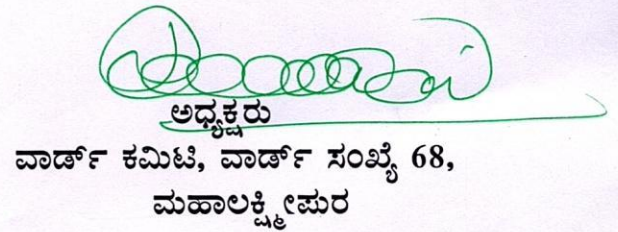 ಅಧ್ಯಕ್ಷರು
ವಾರ್ಡ್ ಕಮಿಟಿ, ವಾರ್ಡ್ ಸಂಖ್ಯೆ 68,
ಮಹಾಲಕ್ಷ್ಮೀಪುರ